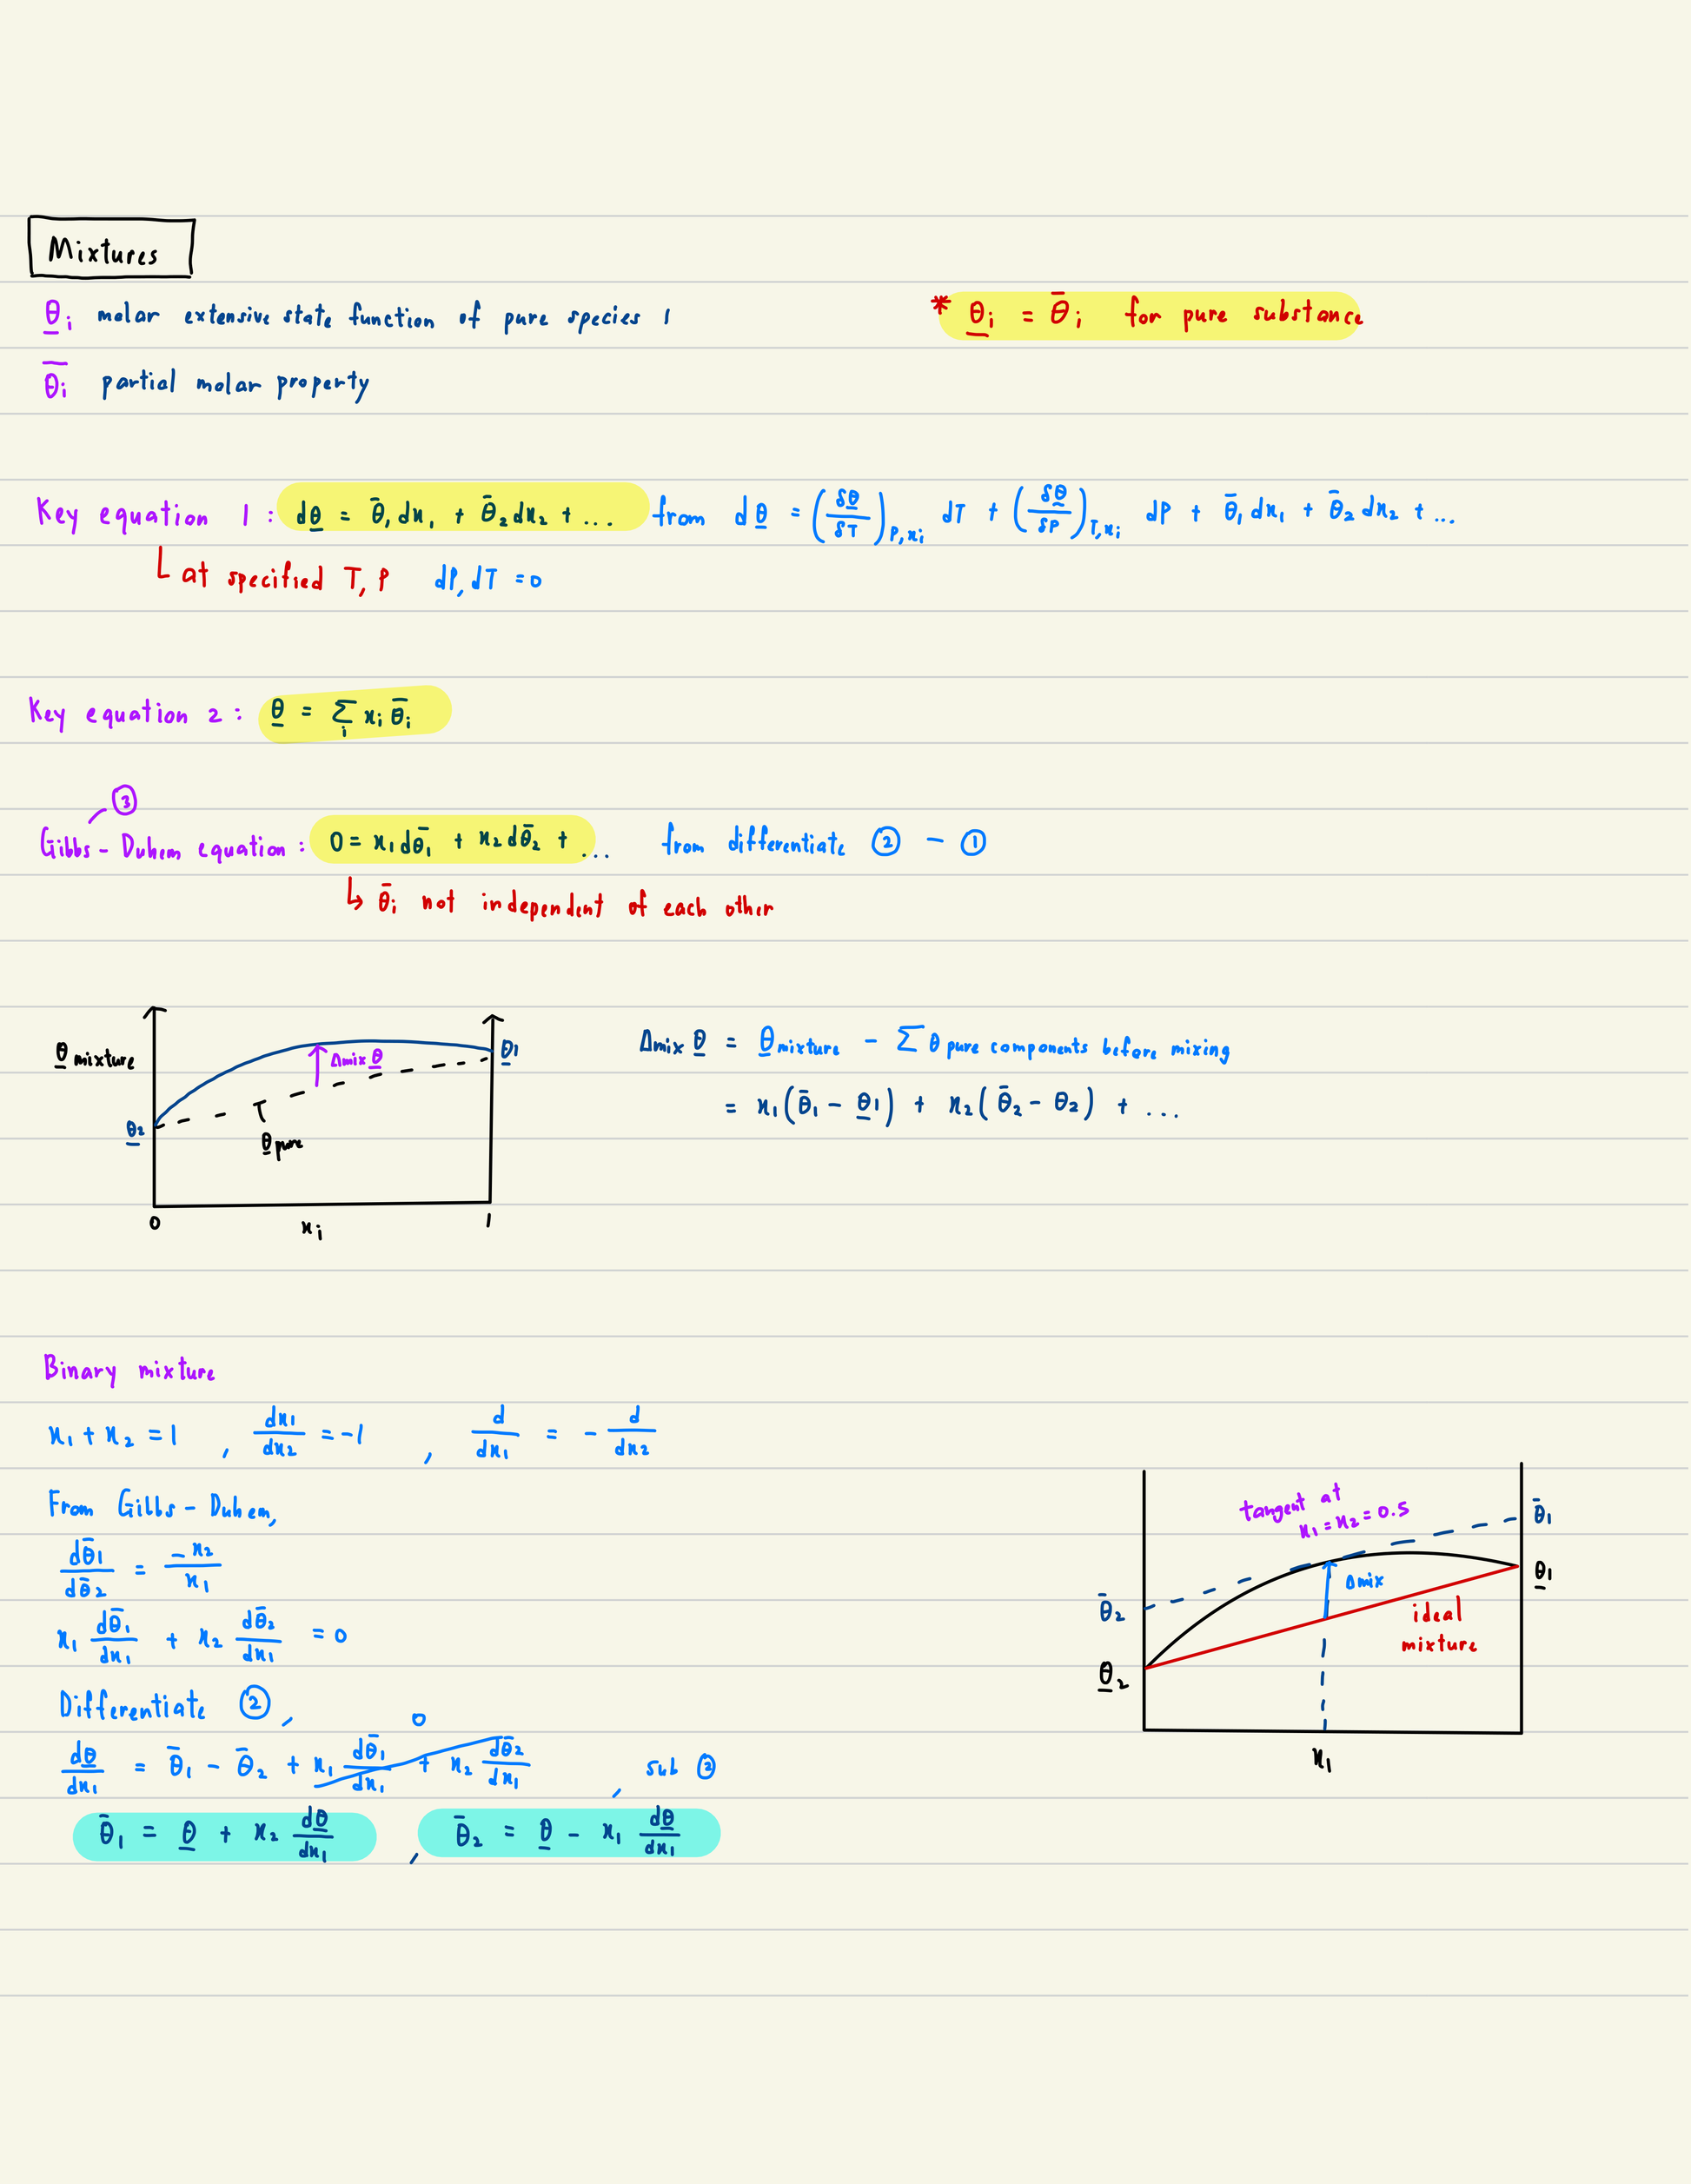 Mixtures
θ̲i molar extensive state function of pure species 1
* θ̲i = θ̄i for pure substance
θ̄i partial molar property
Key equation 1 : dθ̲ = θ̄1 dx1 + θ̄2 dx2 + ... from dθ̲ = (δθ̲/δT)P,xi dT + (δθ̲/δP)T,xi dP + θ̄1 dx1 + θ̄2 dx2 + ...
at specified T, P dP, dT = 0
Key equation 2 : θ̲ = Σi xi θ̄i
③
Gibbs - Duhem equation : 0 = x1 dθ̄1 + x2 dθ̄2 + ... from differentiate ② - ①
↳ θ̄i not independent of each other
θ̲ mixture
Δmix θ̲
θ̲1
θ̲2
θ̲ pure
0 xi 1
Δmix θ̲ = θ̲ mixture - Σ θ pure components before mixing
= x1(θ̄1 - θ̲1) + x2(θ̄2 - θ2) + ...
Binary mixture
x1 + x2 = 1 , dx1/dx2 = -1 , d/dx1 = - d/dx2
From Gibbs - Duhem,
dθ̄1/dθ̄2 = -x2/x1
x1 dθ̄1/dx1 + x2 dθ̄2/dx1 = 0
Differentiate ② ,
0
dθ̲/dx1 = θ̄1 - θ̄2 + x1 dθ̄1/dx1 + x2 dθ̄2/dx1 , sub ②
θ̄1 = θ̲ + x2 dθ̲/dx1 , θ̄2 = θ̲ - x1 dθ̲/dx1
tangent at
x1 = x2 = 0.5
θ̄1
θ̲1
Δmix
θ̄2
ideal
mixture
θ̲2
x1